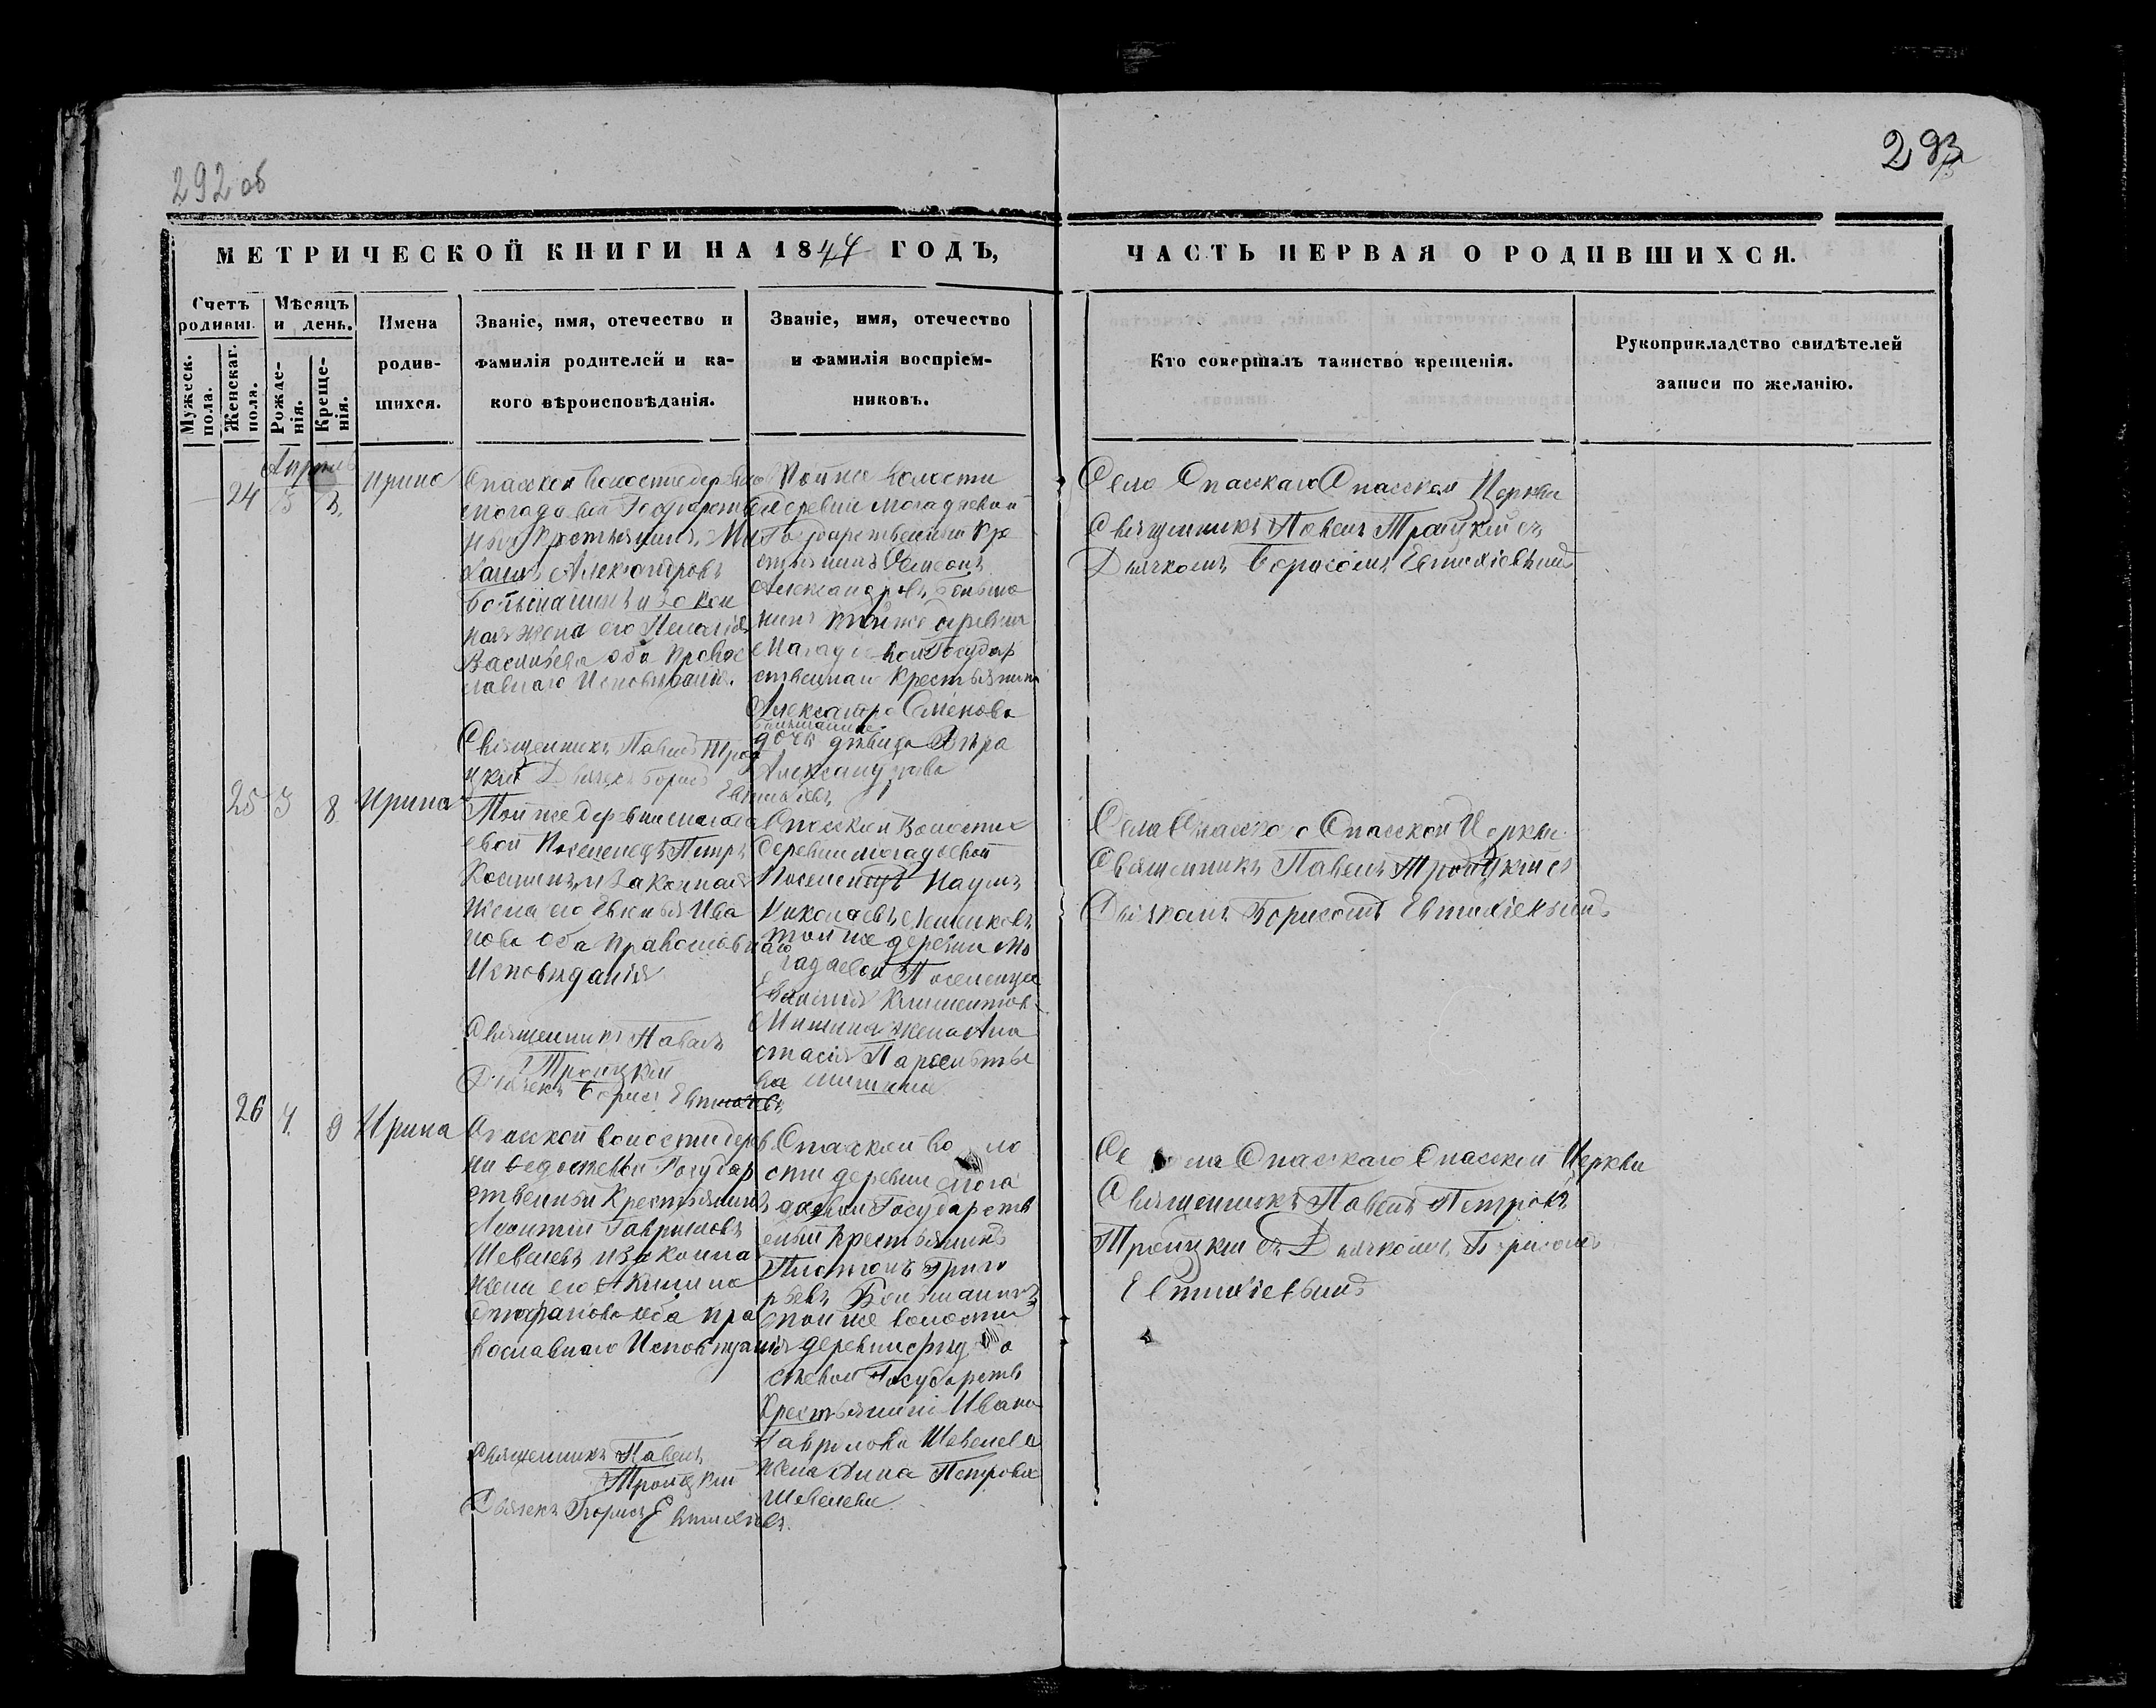 292 об
293
МЕТРИЧЕСКОЙ КНИГИ НА 1844 ГОДЪ,
ЧАСТЬ ПЕРВАЯ О РОДИВШИХСЯ.
Счетъ родивш.
Мужеск. пола.
Женскаг. пола.
Мѣсяцъ и день.
Рожде-нія.
Креще-нія.
Имена
родив-
шихся.
Званіе, имя, отечество и
фамилія родителей и ка-
кого вѣроисповѣданія.
Званіе, имя, отечество
и фамилія воспріем-
никовъ.
Кто совершалъ таинство крещенія.
Рукоприкладство свидѣтелей
записи по желанію.
Апрель
24 3 Ирина
Спасской Волости дерьвни
могадаевой Государств
ной Крестьянинъ Ми
хаилъ Александровъ
и закон
ная жена его Пелагія
Васильева оба Правос
лавнаго Исповѣданія.
Священникъ Павелъ Трои
цкій Дьячекъ Борисъ
Евтихіевъ
Той же Волости
деревни могадаевой
Государственный Кре
стьянинъ Семенъ
Александровъ Больша
нинъ той же деревни
Могадаевой Государ
ственнаго Крестьянина
Александра Семенова
Большанина
дочь дѣвица Вѣра
Александрова
Села Спаскаго Спасской Церкви
Священникъ Павелъ Троицкій съ
Дьячкомъ Борисомъ Евтихіевымъ
25 3 8 Ирина
Той же деревни могада
евой Поселенецъ Петръ
и Законная
жена его Евгенья Ива
нова Оба Православнаго
Исповѣданія
Священникъ Павелъ
Троицкій
Дьячекъ Борисъ Евтихіевъ
Спасской Волости
деревни могадаевой
Поселенецъ Наумъ
Николаевъ
той же деревни мо
гадаевой Поселенца
Климентов
Мишина жена Ана
стасія
ва мишина
Села Спасскаго Спасской Церкви
Священникъ Павелъ Троицкій съ
Дьячкомъ Борисомъ Евтихіевымъ
26 4 9 Ирина
Спасской волости дерев
ни Государ
ственный Крестьянинъ
Леонтій Гавриловъ
Шевелевъ и Законна
жена его Акилина
оба пра
вославнаго Исповѣданія
Священникъ Павелъ
Троицкій
Дьячекъ Борисъ Евтихіевъ.
Спаской во ло
сти деревни мога
даевой Государств
еный крестьянинъ
Платонъ Григо
рьевъ Большанинъ
той же волости
деревни
Государств
Крестьянина Ивана
Гаврилова Шевелева
жена Анна Петрова
Шевелева
Се ла Спасскаго Спасской Церкви
Священникъ Павелъ Петровъ
Троицкій съ Дьячкомъ Борисомъ
Евтихіевымъ